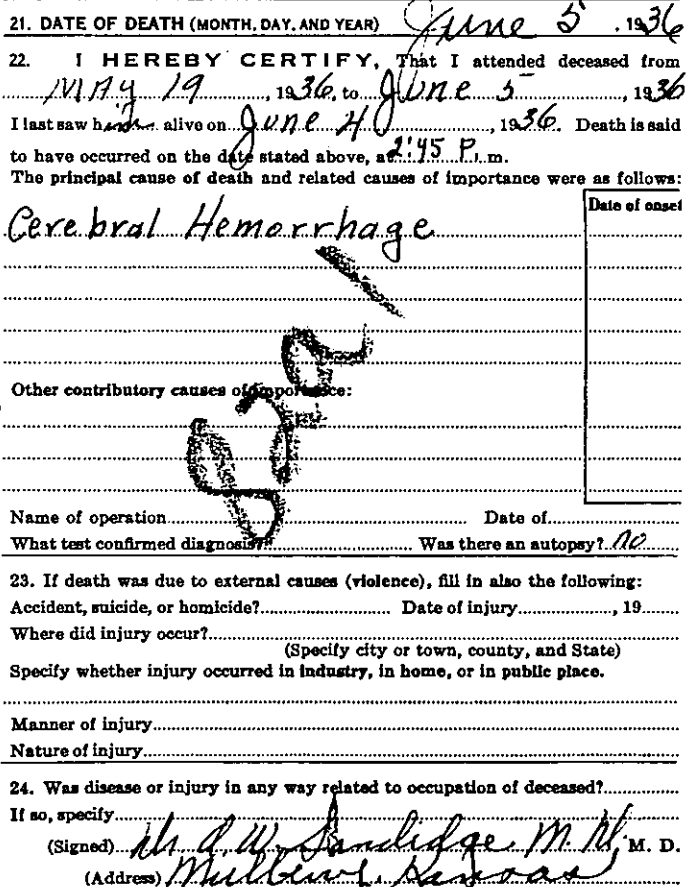 21. DATE OF DEATH (MONTH, DAY, AND YEAR) June 5 . 1936
22. I HEREBY CERTIFY, That I attended deceased from
MAy 19, 1936, to June 5, 1936
I last saw him alive on June 4, 1936. Death is said
to have occurred on the date stated above, at 2:45 P. m.
The principal cause of death and related causes of importance were as follows:
Date of onset
Cerebral Hemorrhage
Other contributory causes of importance:
Name of operation Date of
What test confirmed diagnosis? Was there an autopsy? no
23. If death was due to external causes (violence), fill in also the following:
Accident, suicide, or homicide? Date of injury , 19
Where did injury occur?
(Specify city or town, county, and State)
Specify whether injury occurred in industry, in home, or in public place.
Manner of injury
Nature of injury
24. Was disease or injury in any way related to occupation of deceased?
If so, specify
(Signed) W. Sandidge M. D., M. D.
(Address) Mulberry, Kansas